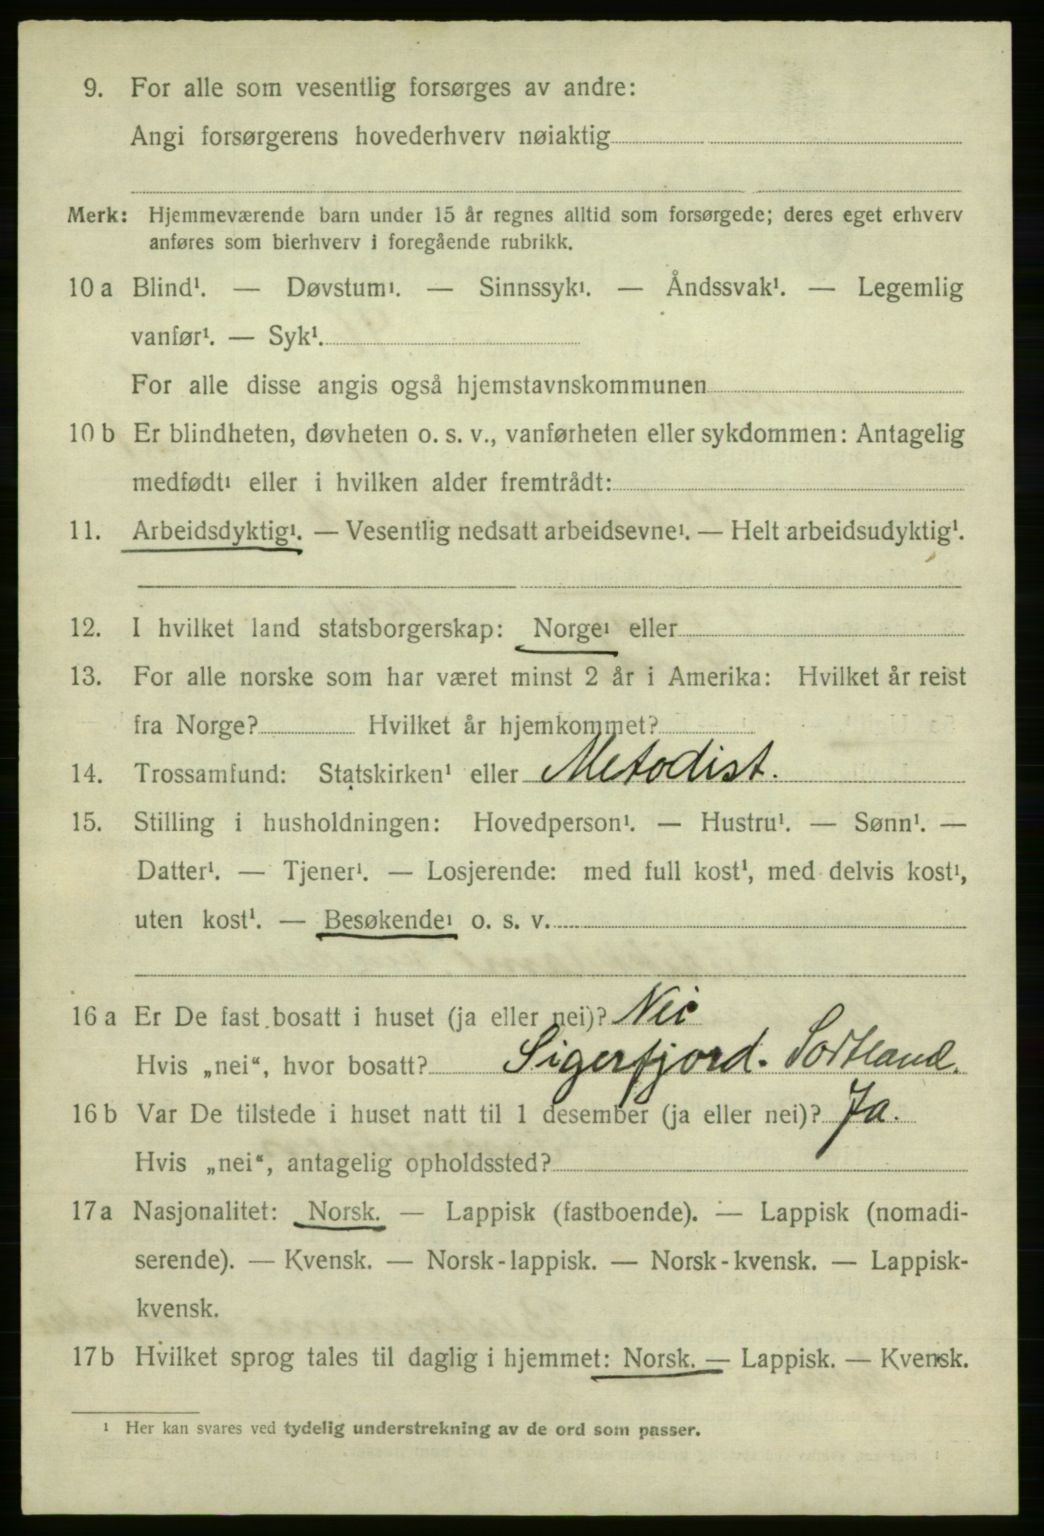 9. For alle som vesentlig forsørges av andre:
Angi forsørgerens hovederhverv nøiaktig
Merk: Hjemmeværende barn under 15 år regnes alltid som forsørgede; deres eget erhverv
anføres som bierhverv i foregående rubrikk.
10 a Blind¹. — Døvstum¹. — Sinnssyk¹. — Åndssvak¹. — Legemlig
vanfør¹. — Syk¹.
For alle disse angis også hjemstavnskommunen
10 b Er blindheten, døvheten o. s. v., vanførheten eller sykdommen: Antagelig
medfødt¹ eller i hvilken alder fremtrådt:
11. Arbeidsdyktig¹. — Vesentlig nedsatt arbeidsevne¹. — Helt arbeidsudyktig¹.
12. I hvilket land statsborgerskap: Norge¹ eller
13. For alle norske som har været minst 2 år i Amerika: Hvilket år reist
fra Norge? Hvilket år hjemkommet?
14. Trossamfund: Statskirken¹ eller Metodist.
15. Stilling i husholdningen: Hovedperson¹. — Hustru¹. — Sønn¹. —
Datter¹. — Tjener¹. — Losjerende: med full kost¹, med delvis kost¹,
uten kost¹. — Besøkende¹ o. s. v.
16 a Er De fast bosatt i huset (ja eller nei)? Nei
Hvis „nei“, hvor bosatt? Sigerfjord. Sortland.
16 b Var De tilstede i huset natt til 1 desember (ja eller nei)? Ja.
Hvis „nei“, antagelig opholdssted?
17 a Nasjonalitet: Norsk. — Lappisk (fastboende). — Lappisk (nomadi-
serende). — Kvensk. — Norsk-lappisk. — Norsk-kvensk. — Lappisk-
kvensk.
17 b Hvilket sprog tales til daglig i hjemmet: Norsk. — Lappisk. — Kvensk.
¹ Her kan svares ved tydelig understrekning av de ord som passer.